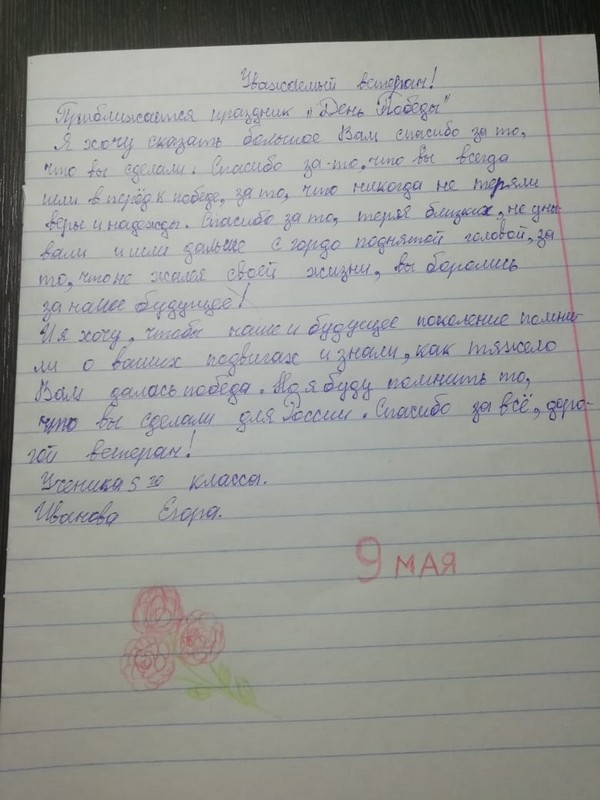 Уважаемый ветеран!
Приближается праздник „День Победы"
Я хочу сказать большое Вам спасибо за то,
что вы сделали. Спасибо за-то, что вы всегда
шли в перёд к победе, за то, что никогда не теряли
веры и надежды. Спасибо за то, теряя близких, не уны
вали и шли дальше с гордо поднятой головой, за
то, что не жалея своей жизни, вы боролись
за наше будущее!
И я хочу, чтобы наше и будущее поколение помни
ли о ваших подвигах и знали, как тяжело
Вам далась победа. Но я буду помнить то,
что вы сделали для России. Спасибо за всё, доро-
гой ветеран!
Ученика 5 го класса.
Иванова Егора.
9 МАЯ